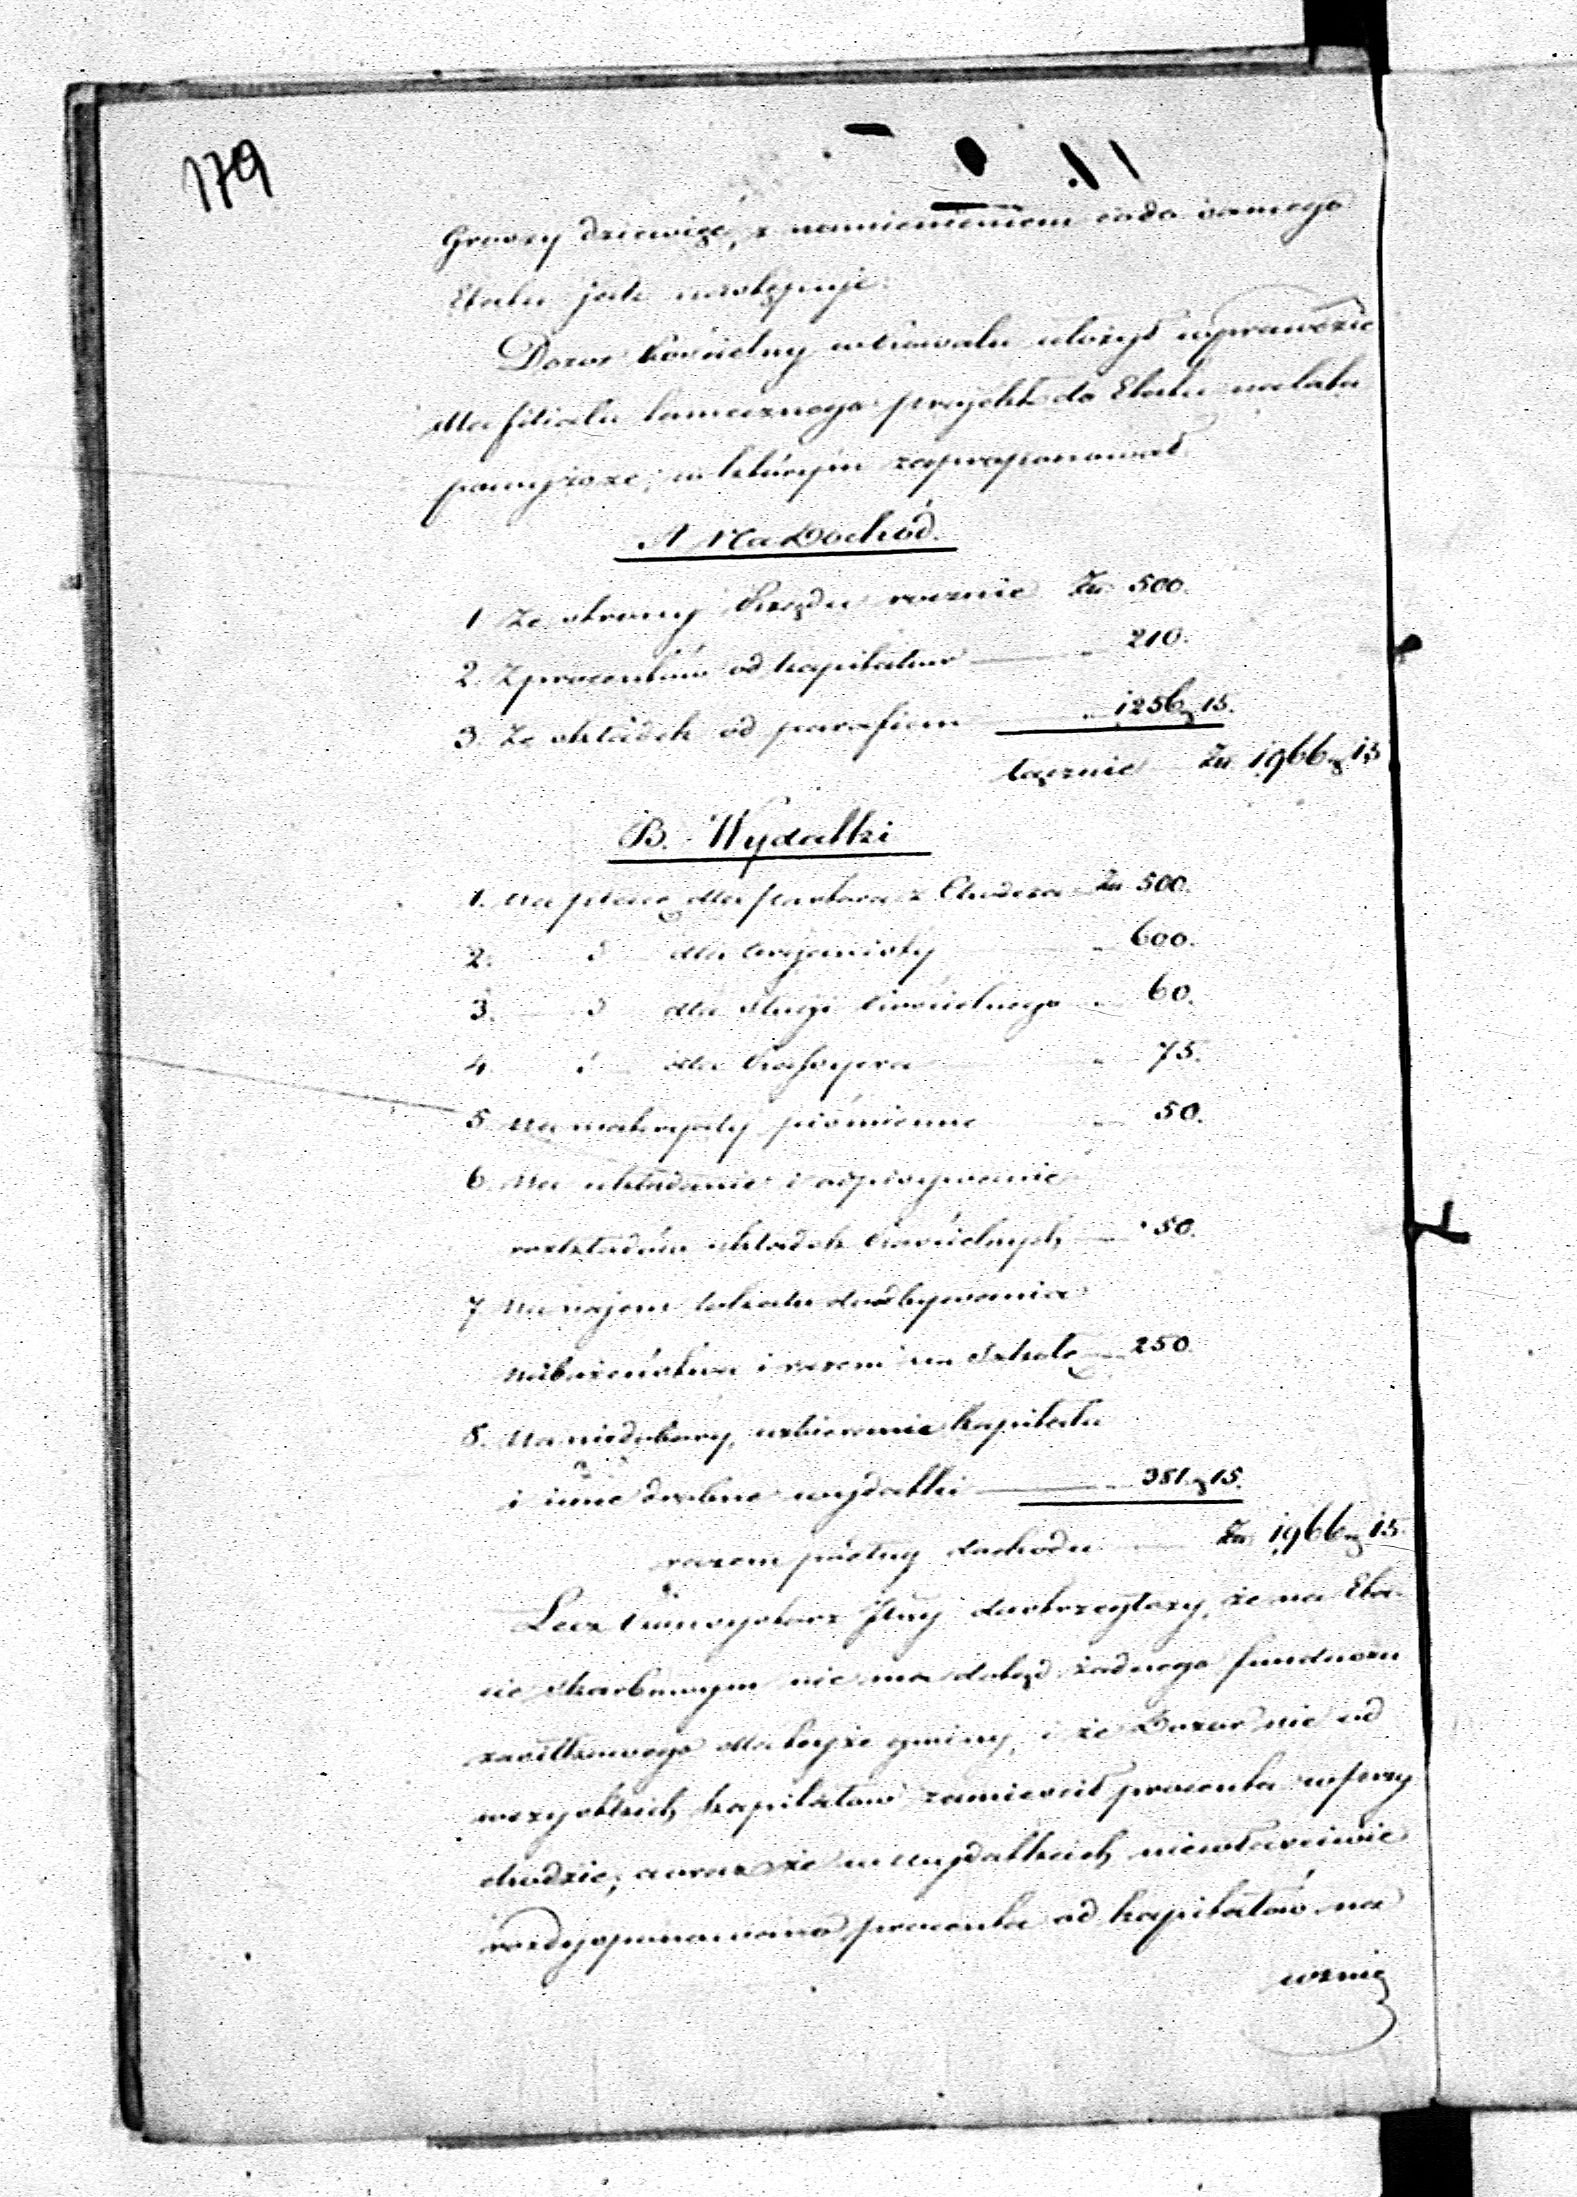 179
Groszy dziewięć, z namienieniem co do samego
Etatu jak następuje:
Dozór kościelny w Suwałk ułożył wprawdzie
dla filiału tamecznego projekt do Etatu na lata
powyższe; w którym zaproponował
A Na Dochód.
1 Ze strony Rządu rocznie Zł. 500.
2. Z procentów od kapitałów „ 210.
3. Ze składek od parafian „ 1256 g 15.
łącznie Zł. 1966 g 15
B. Wydatki
1. na płacę dla pastora z Zł 500.
2. d dla organisty „ 600.
3. d dla sługi kościelnego „ 60.
4. d dla kassyera „ 75.
5 na materyały piśmienne „ 50.
6 na układanie i odpisywanie
rozkładów składek kościelnych „ 50.
7 na najem lokalu do odbywania
nabożeństwa i razem na szkołę „ 250.
8. na niedobory, uzbieranie kapitału
i inne drobne wydatki „ 381 g 15.
razem jak dochodu Zł. 1966 g 15.
Lecz dostrzegłszy, że na Eta-
cie skarbowym nie ma dotąd żadnego funduszu
zasiłkowego dla tejże gminy, i że Dozór nie od
wszystkich kapitałów zamieścił procenta w przy
chodzie; a oraz że w wydatkach niewłaściwie
rozdysponowano procenta od kapitałów na
wznie